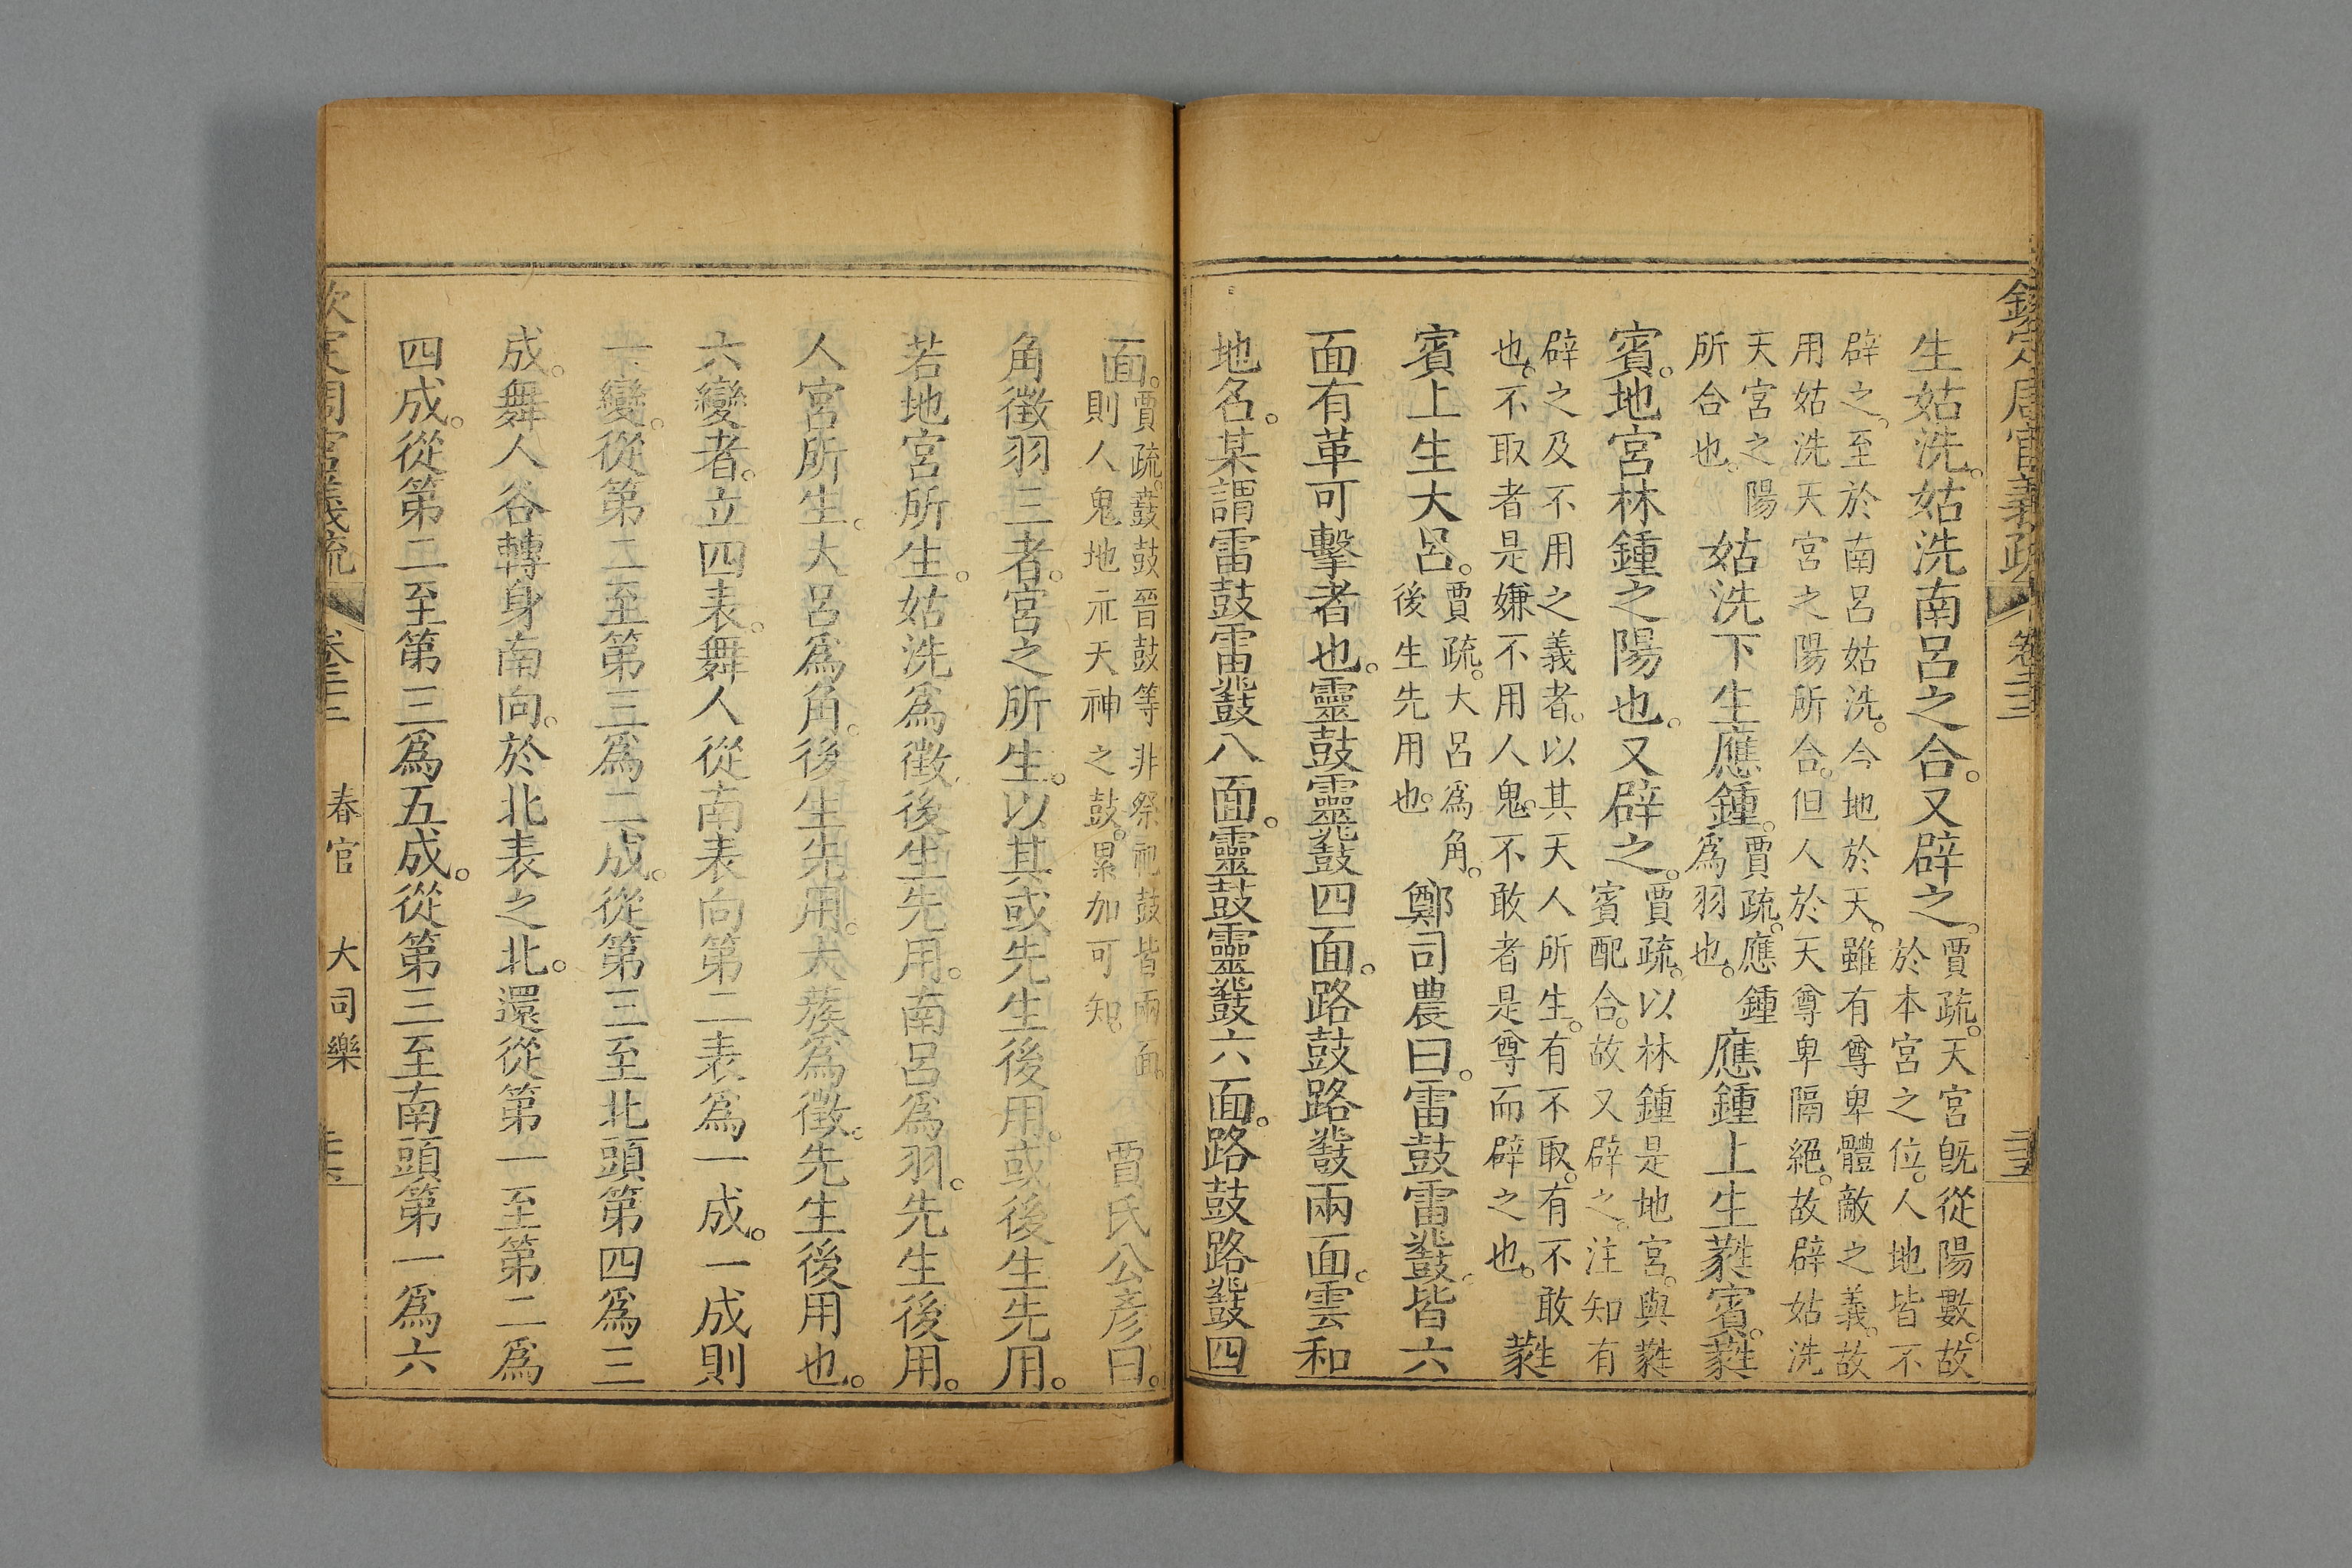 欽定周官義疏 卷二十二
生姑洗。姑洗南呂之合。又辟之。賈疏。天宮既從陽數。故於本宮之位。人地皆不
辟之。至於南呂姑洗。今地於天。雖有尊卑體敵之義。故用姑洗天宮之陽所合。但人於天尊卑隔絕。故辟姑洗
天宮之陽所合也。姑洗下生應鍾。賈疏。應鍾為羽也。應鍾上生蕤賓。蕤
賓。地宮林鍾之陽也。又辟之。賈疏。以林鍾是地宮。與蕤賓配合。故又辟之。注知有
辟之及不用之義者。以其天人所生。有不取。有不敢也。不取者是嫌不用人鬼。不敢者是尊而辟之也。蕤
賓上生大呂。賈疏。大呂為角。後生先用也。鄭司農曰。雷鼓雷鼗。皆六
面有革可擊者也。靈鼓靈鼗四面。路鼓路鼗兩面。雲和
地名。某謂雷鼓雷鼗八面。靈鼓靈鼗六面。路鼓路鼗四
面。賈疏。鼖鼓晉鼓等非祭祀鼓皆兩面。則人鬼地示天神之鼓。累加可知。賈氏公彥曰。
角徵羽三者。宮之所生。以其或先生後用。或後生先用。
若地宮所生。姑洗爲徵。後生先用。南呂爲羽。先生後用。
人宮所生。大呂爲角。後生先用。大蔟爲徵。先生後用也。
六變者。立四表。舞人從南表向第二表爲一成。一成則
一變。從第二至第三爲二成。從第三至北頭第四爲三
成。舞人各轉身南向。於北表之北。還從第一至第二爲
四成。從第二至第三爲五成。從第三至南頭第一爲六
欽定周官義疏 卷二十二 春官 大司樂